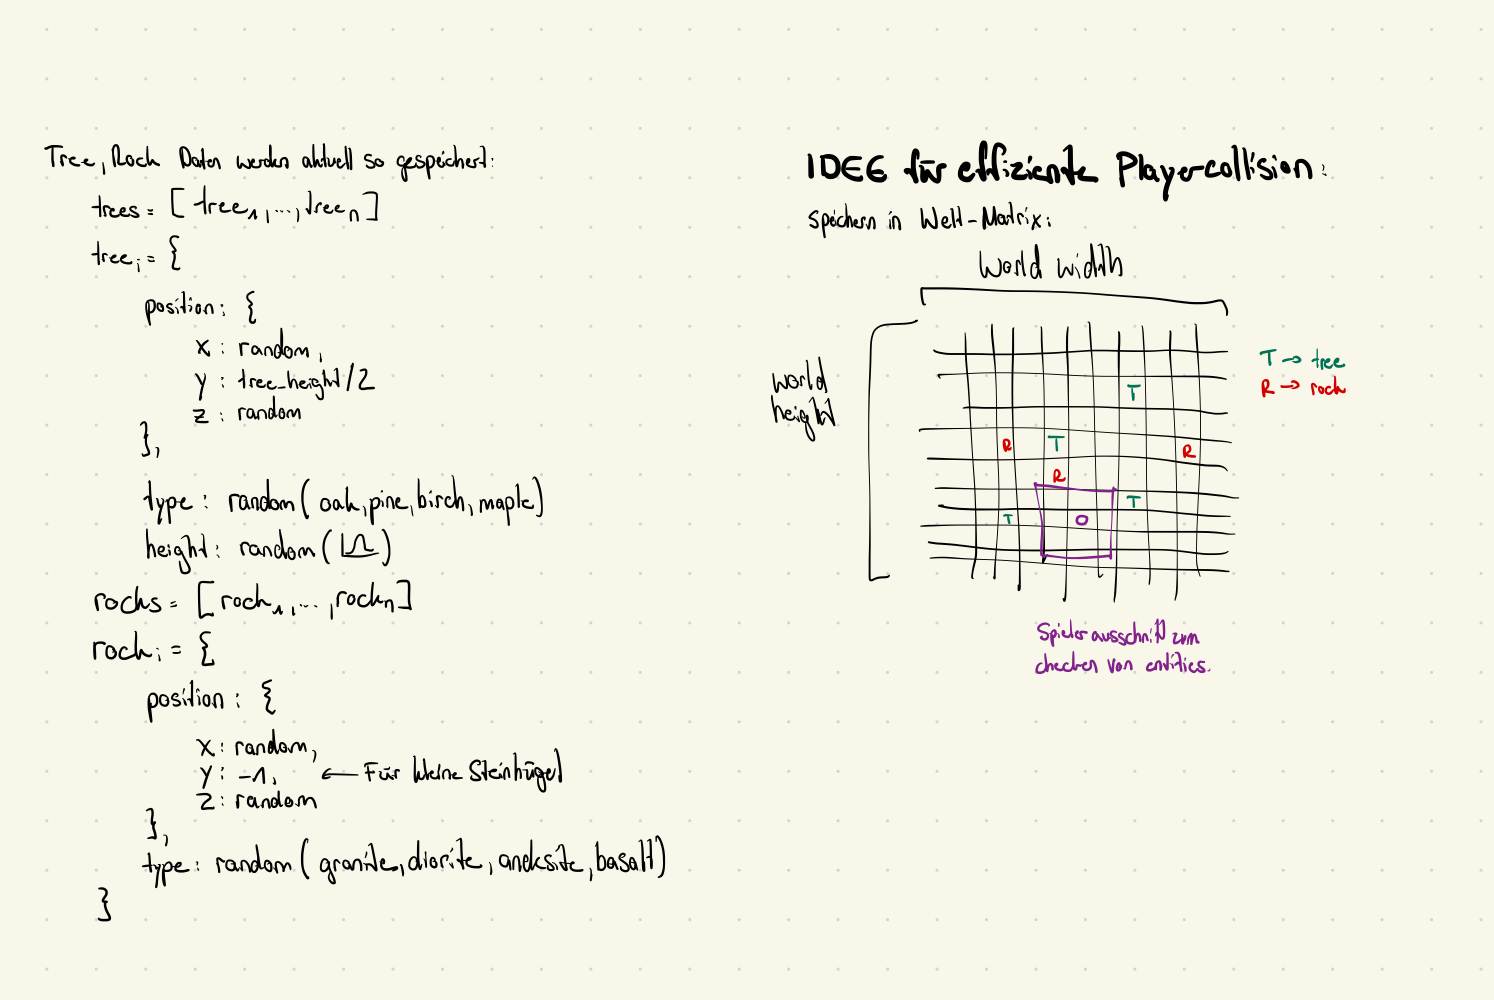 Tree, Rock Daten werden aktuell so gespeichert:
trees = [tree₁, ..., treeₙ]
treeᵢ = {
position: {
x: random,
y: tree_height/2
z: random
},
type: random(oak, pine, birch, maple)
height: random( )
rocks = [rock₁, ..., rockₙ]
rockᵢ = {
position: {
x: random,
y: -1, ← Für kleine Steinhügel
z: random
},
type: random(granite, diorite, andesite, basalt)
}
IDEE für effiziente Player-collision:
Speichern in Welt-Matrix:
World width
world
height
T → tree
R → rock
T
R T R
R
T O T
Spielerausschnitt zum
checken von entities.